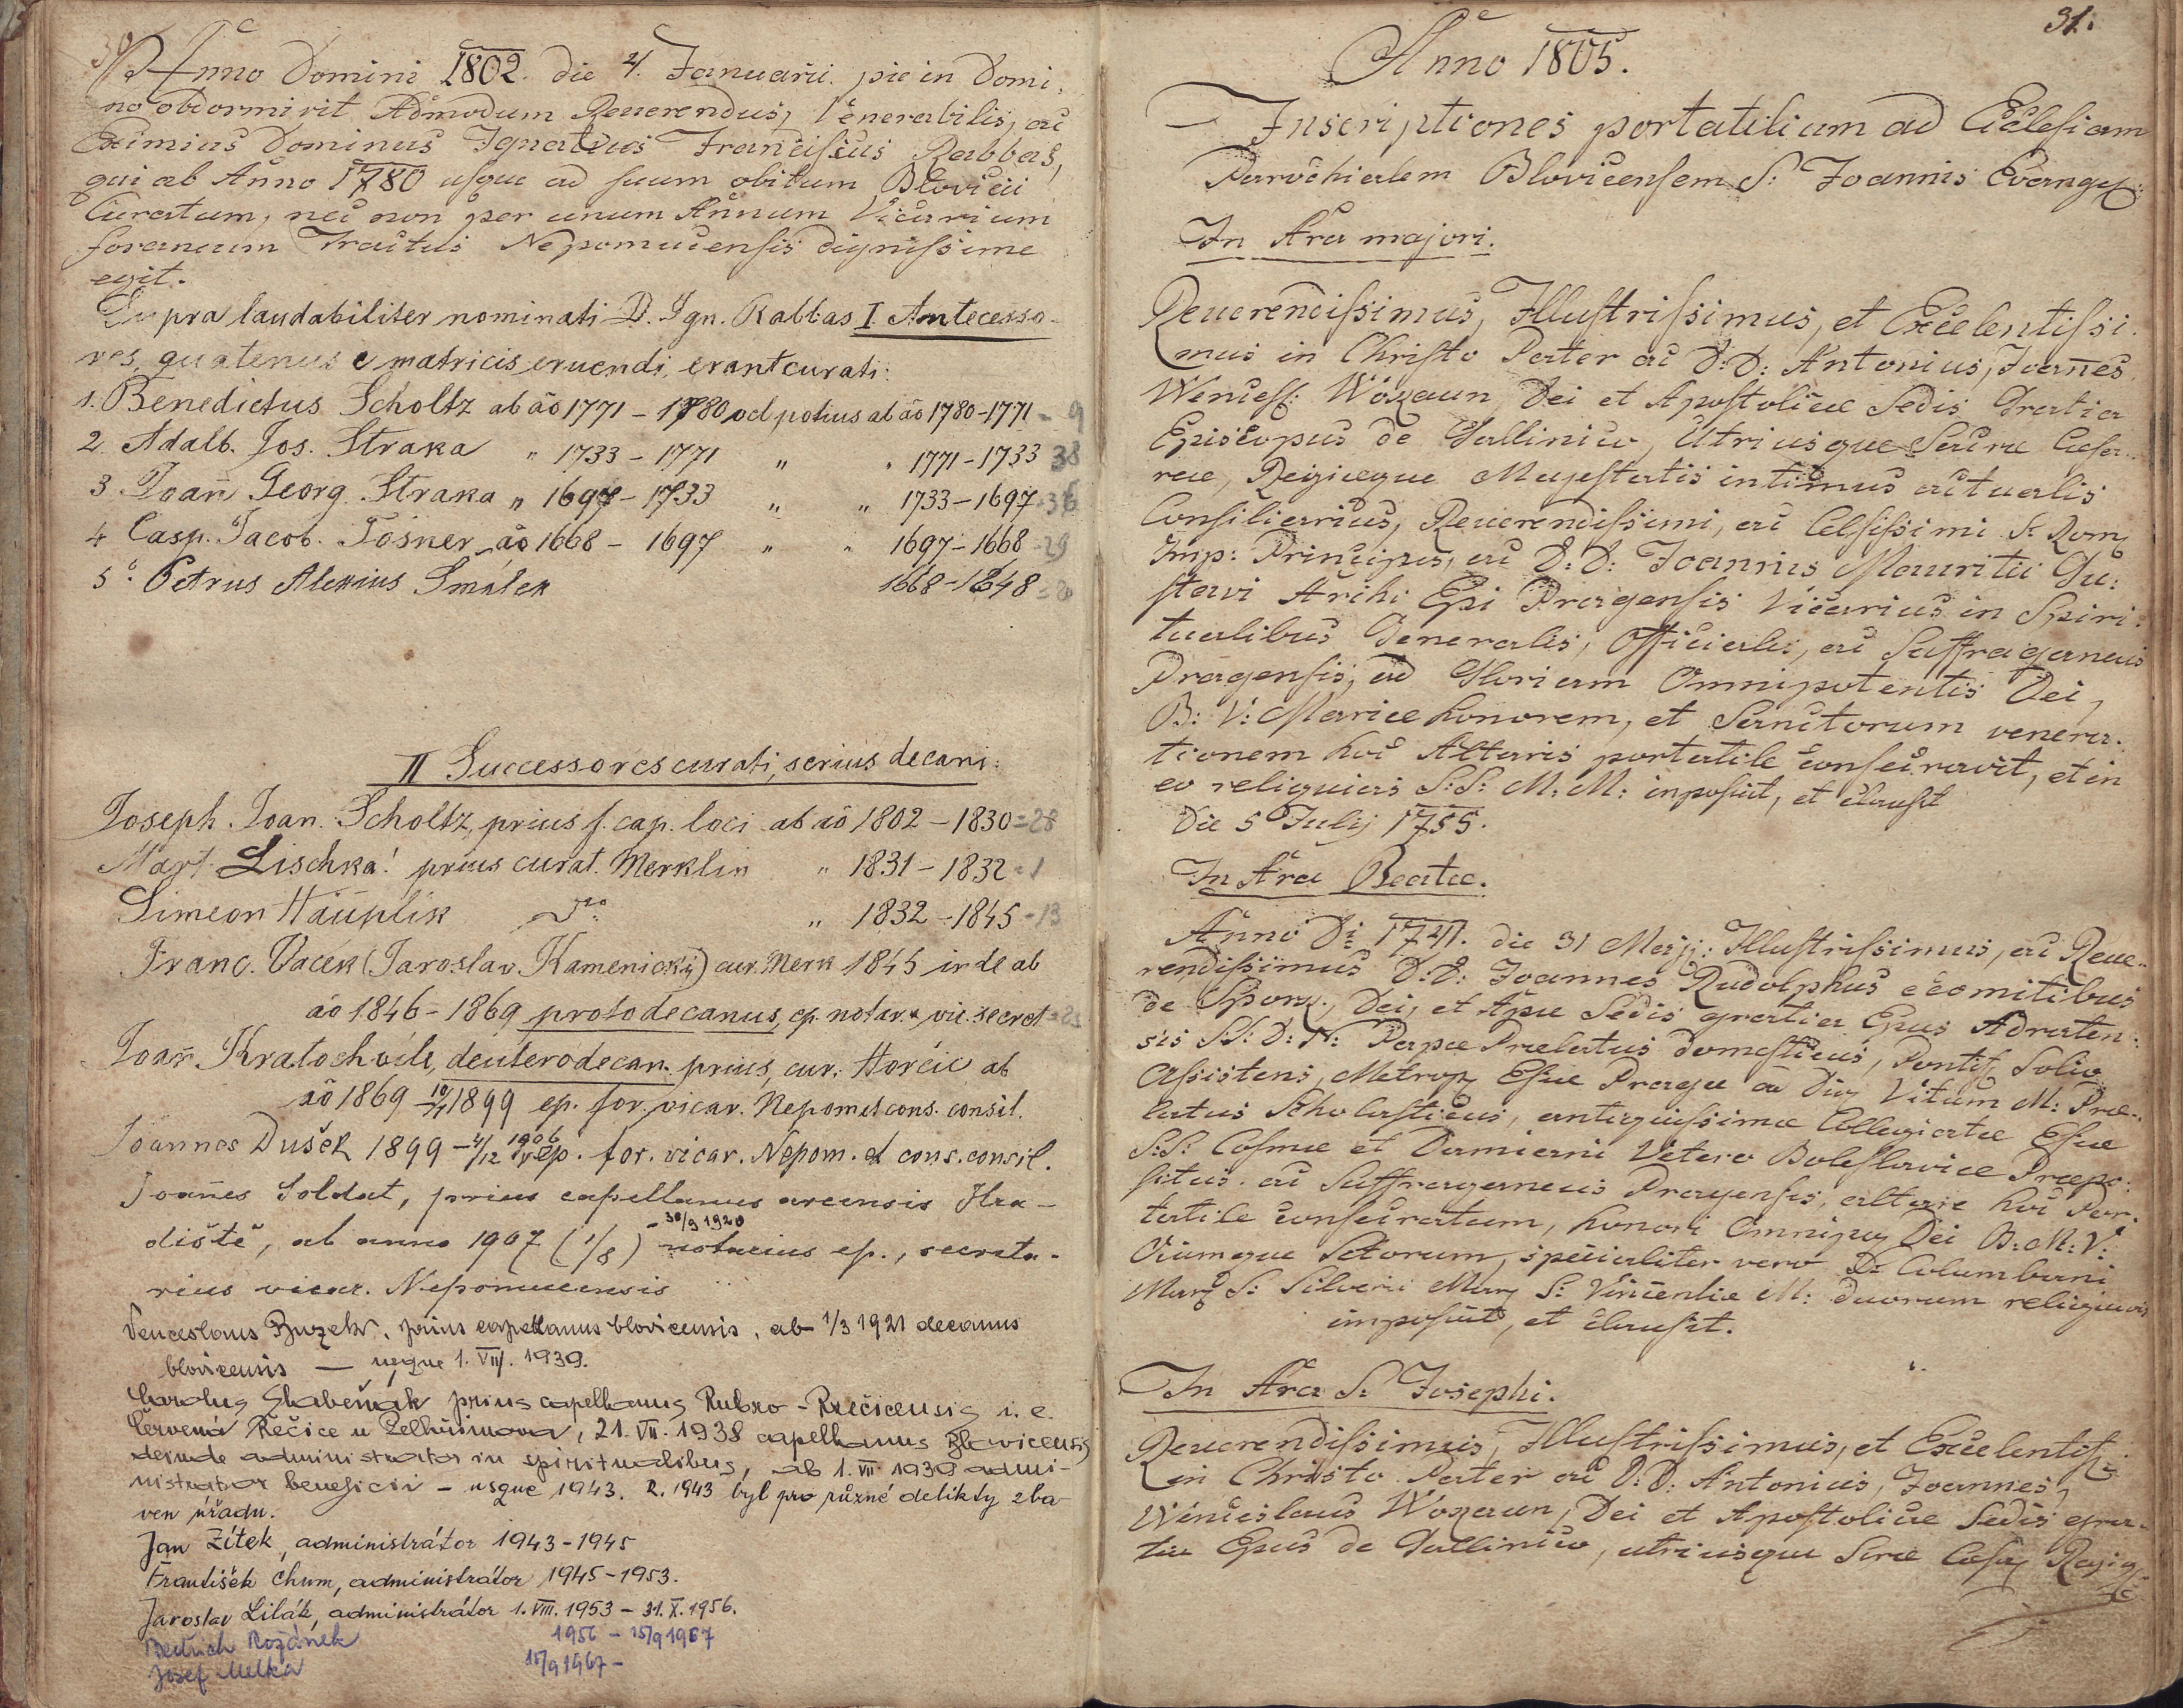 30
Anno Domini 1802. die 4. Januarii. pie in Domi,
no obdormivit Admodum Reverendus, Venerabilis, ac
Eximius Dominus Ignatius Franciscus Rabbas,
qui ab Anno 1780 usque ad suum obitum Blovicii
Curatum, nec non per unum Annum Vicarium
foraneum Tractus Nepomucensis dignissime
egit.
Supra laudabiliter nominati D. Ign. Rabbas I. Antecesso-
res, quatenus e matricis eruendi, erant curati:
1. Benedictus Scholtz ab ao 1771 - 1780 vel potius ab ao 1780-1771 = 9
2. Adalb. Jos. Straka " 1733 - 1771 " " 1771-1733 38
3 Joan̄ Georg. Straka " 1697 - 1733 " " 1733-1697 = 36
4 Casp. Jacob. Tösner ao 1668 - 1697 " " 1697-1668 = 29
5. Petrus Alexius Smálek 1668-1648 = 20
II Successores curati, serius decani:
Joseph. Joan. Scholtz, prius f. cap. loci ab ao 1802 - 1830 = 28
Mart. Lischka! prius curat. Merklin " 1831 - 1832 = 1
Simeon Hauplik dto " 1832 - 1845 = 13
Franc. Vacek (Jaroslav. Kamenický) cur. Merk 1845 inde ab
ao 1846 - 1869 protodecanus, ep. notar. & vic. secret = 23
Joan̄ Kratochvile, deuterodecan. prius, cur. Horčic ab
ao 1869 - 1899 ep. for. vicar. Nepom et cons. consil.
Joannes Dušek 1899 - 4/12 1906 ep. for. vicar. Nepom. et cons. consil.
Joan̄es Soldat, prius capellanus arcensis Hra-
diště, ab anno 1907 (1/8) - 30/9 1920 notarius ep., secreta-
rius vicar. Nepomucensis
Venceslaus Buzek, prius capellanus blovicensis, ab 1/3 1921 decanus
blovicensis — usque 1. VII. 1939.
Carolus Skabeňák prius capellanus Rubro-Rzečicensis i. e.
Červená Řečice u Pelhřimova, 21. VII. 1938 capellanus Blovicensis
deinde administrator in spiritualibus, ab 1. VII 1939 admi-
nistrator beneficii - usque 1943. R. 1943 byl pro různé delikty zba-
ven úřadu.
Jan Zítek, administrátor 1943-1945
František Chum, administrátor 1945-1953.
Jaroslav Lilák, administrátor 1. VIII. 1953 - 31. X. 1956.
Bedřich Rozánek 1956 - 15/9 1967
Josef Melka 15/9 1967 -
31.
Anno 1805.
Inscriptiones portatilium ad Ecclesiam
Parochialem Blovicensem S: Joannis Evang:
In Ara majori.
Reverendissimus, Illustrissimus, et Excelentissi.
mus in Christo Pater ac D: D: Antonius, Joan̄es,
Wencesl: Wokaun, Dei et Apostolicae Sedis Gratia
Episcopus de Callinico, Utriusque Sacrae Caesa..
reae, Regiaeque Majestatis intimus actualis
Consiliarius, Reverendissimi, ac Celsissimi S: Rom:
Imp: Principis, ac D: D: Joannis Mauritii Gu:
stavi Archi Epi Pragensis Vicarius in Spiri.
tualibus Generalis, Officialis, ac Suffraganeus
Pragensis, ad Gloriam Omnipotentis Dei,
B: V: Mariae honorem, et Sanctorum venera.
tionem hoc Altaris portatile consecravit, et in
eo reliquias S: S: M: M: inposuit, et clausit
Die 5 Julij 1755.
In Ara Beatae.
Anno Di 1741. die 31 Maji: Illustrissimus, ac Reve..
rendissimus D: D: Joannes Rudolphus e comitibus
de Sporg, Dei, et Apcae Sedis gratia Epus Adraten:
sis SS: D: N: Papae Praelatus domesticus, Pontif. Solio
Assistens, Metrop: Eccae Pragae ad Div Vitum M: Prae..
latus Scholasticus, antiquissimae Collegiatae Eccae
S:S: Cosmae et Damiani Vetero Boleslaviae Praepo:
situs. ac Suffraganeus Pragensis, altare hoc Por.
tatile consecratum, honori Omnip: Dei B: M: V:
Oiumque Sctorum, specialiter vero D: Columbani
Mar: S: Silverii Mar: S: Vincentiae M: duorum reliquias
imposuit, et clausit.
In Ara S: Josephi.
Reverendissimus, Illustrissimus, et Excelentiss:
in Christo Pater ac D: D: Antonius, Joannes,
Wenceslaus Wokaun, Dei et Apostolicae Sedis gra-
tia Epus de Callinico, utriusque Scrae Caes: Regiae